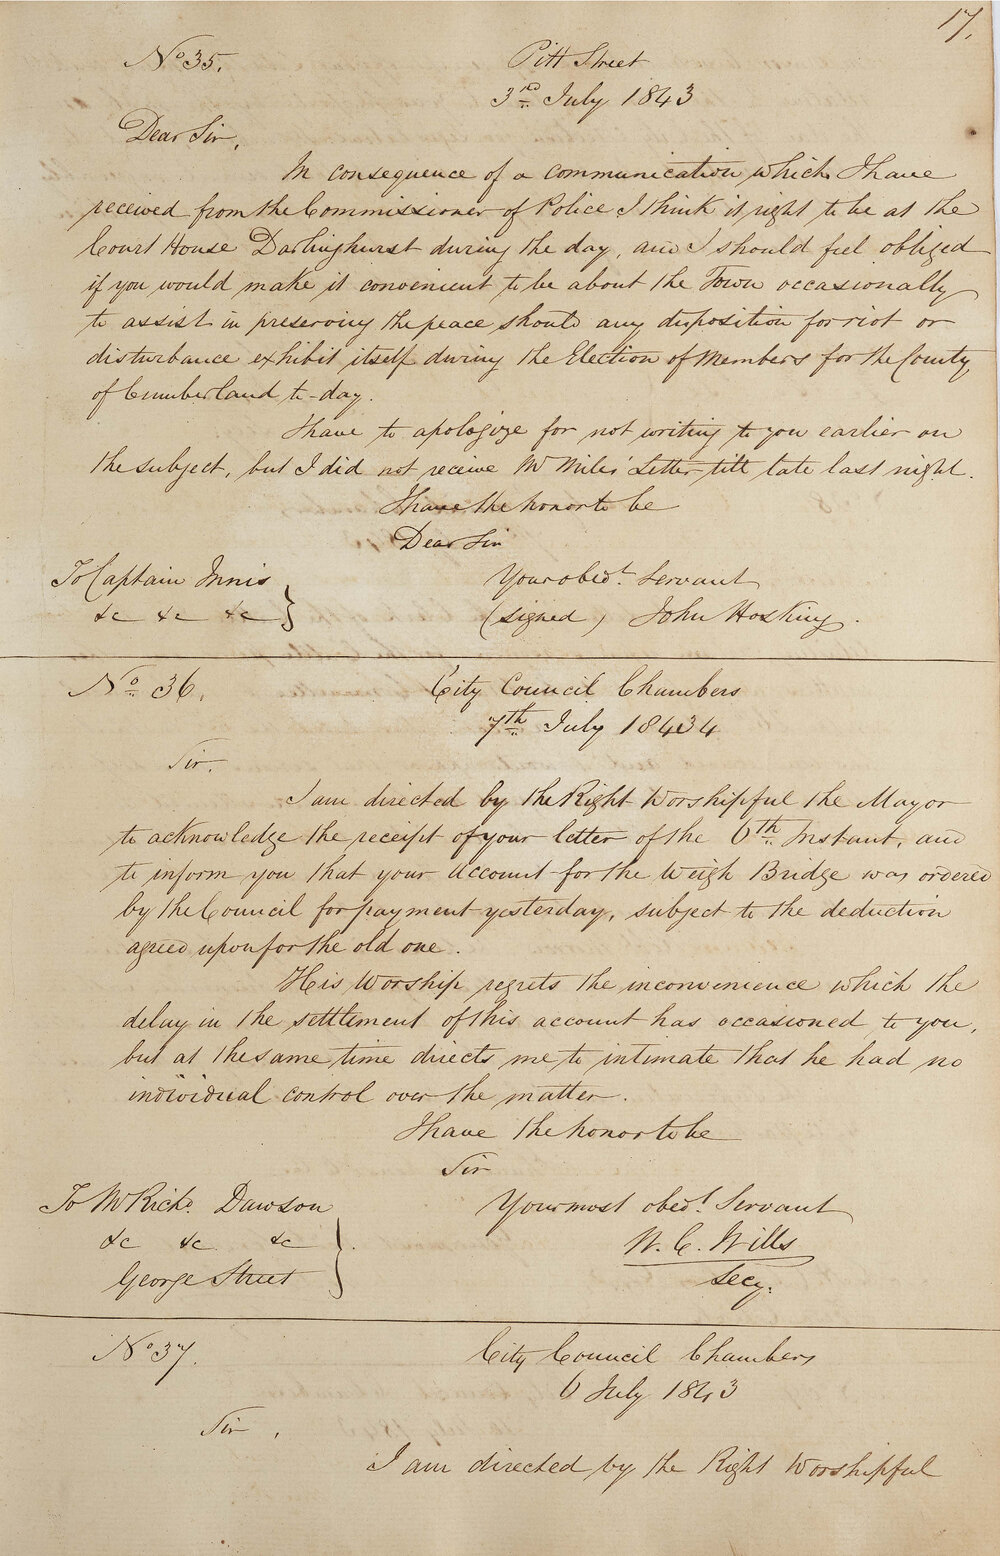 17.
No 35.
Pitt Street
3rd July 1843
Dear Sir,
In consequence of a communication which I have
received from the Commissioner of Police I think it right to be at the
Court House Darlinghurst during the day, and I should feel obliged
if you would make it convenient to be about the Town occasionally
to assist in preserving the peace should any disposition for riot or
disturbance exhibit itself during the Election of Members for the County
of Cumberland to-day.
I have to apologize for not writing to you earlier on
the subject, but I did not receive Mr Miles' Letter till late last night.
I have the honor to be
Dear Sir
Your obedt. Servant
(signed) John Hosking.
To Captain Innis
&c &c &c }
No 36.
City Council Chambers
7th July 18434
Sir.
I am directed by the Right Worshipful the Mayor
to acknowledge the receipt of your letter of the 6th Instant, and
to inform you that your account for the Weigh Bridge was ordered
by the Council for payment yesterday, subject to the deduction
agreed upon for the old one.
His Worship regrets the inconvenience which the
delay in the settlement of this account has occasioned to you,
but at the same time directs me to intimate that he had no
individual control over the matter.
I have the honor to be
Sir
Your most obedt. Servant
W. C. Wills
Secy.
To Mr Richd. Dawson
&c &c &c }
George Street
No 37.
City Council Chambers
6 July 1843
Sir,
I am directed by the Right Worshipful